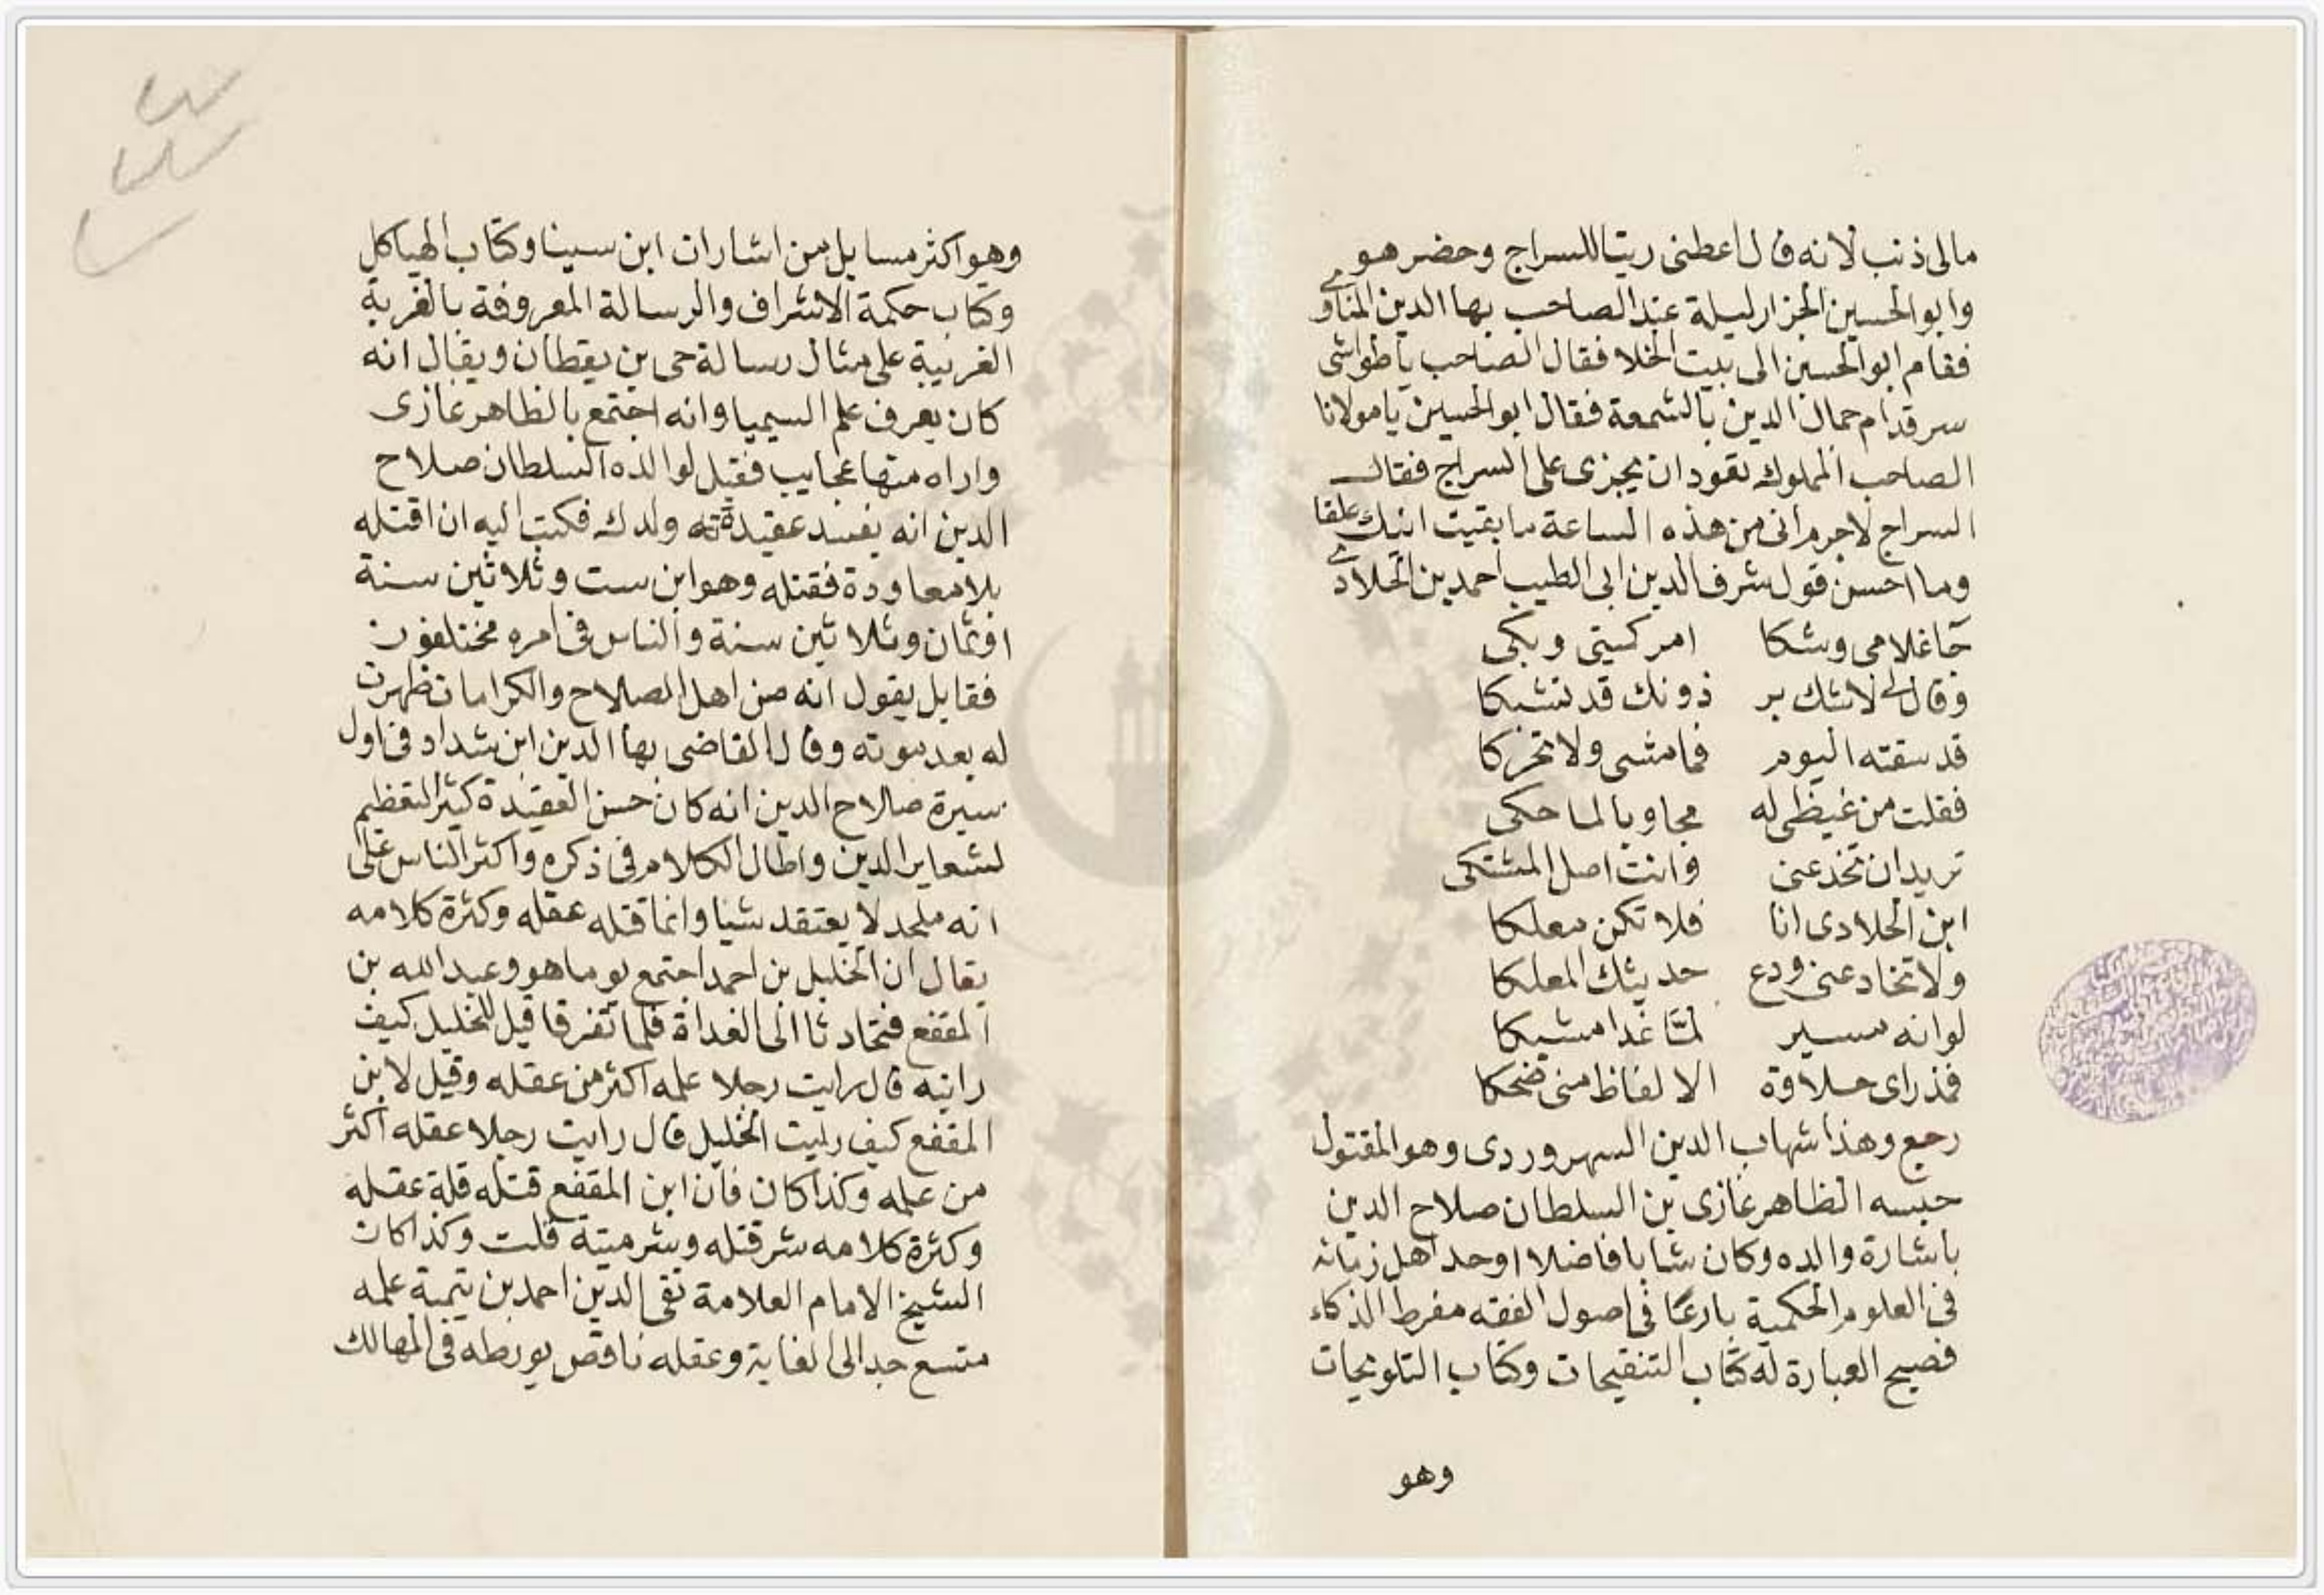 مالى ذنب لانه قال اعطنى زيتا للسراج وحضر هو
وابو الحسين الجزار ليلة عند الصاحب بها الدين المناوى
فقام ابو الحسين الى بيت الخلا فقال الصاحب ياطواشى
سر قدام جمال الدين بالشمعة فقال ابو الحسين يامولانا
الصاحب المملوك تعود ان يجزى على السراج فقال
السراج لاجرم انى من هذه الساعة ما بقيت انيك علقا
وما احسن قول شرف الدين ابى الطيب احمد بن الحلاوى
جا غلامى وشكا امر كميتى وبكى
وقال لى لاشك بر ذونك قد تشبكا
قد سقته اليوم فما مشى ولا تحركا
فقلت من غيظى له مجاوبا لما حكى
تريد ان تخدعنى وانت اصل المشتكى
ابن الحلاوى انا فلا تكن معلكا
ولا تخادعنى ودع حديثك المعلكا
لو انه مسير لما غدا مشبكا
فمذ راى حلاوة الالفاظ منى ضحكا
رجع وهذا شهاب الدين السهروردى وهو المقتول
حبسه الظاهر غازى بن السلطان صلاح الدين
باشارة والده وكان شابا فاضلا اوحد اهل زمانه
فى العلوم الحكمية بارعا فى اصول الفقه مفرط الذكاء
فصيح العبارة له كتاب التنقيحات وكتاب التلويحات
وهو
وهو اكثر مسايل من اشارات ابن سينا وكتاب الهياكل
وكتاب حكمة الاشراف والرسالة المعروفة بالغربة
الغربية على مثال رسالة حى بن يقطان ويقال انه
كان يعرف علم السيميا وانه اجتمع بالظاهر غازى
واراه منها عجايب فقيل لوالده السلطان صلاح
الدين انه يفسد عقيدة ولدك فكتب اليه ان اقتله
بلا معاودة فقتله وهو ابن ست وثلاثين سنة
اوثمان وثلاثين سنة والناس فى امره مختلفون
فقايل يقول انه من اهل الصلاح والكرامات ظهرت
له بعد موته وقال القاضى بها الدين ابن شداد فى اول
سيرة صلاح الدين انه كان حسن العقيدة كثير التعظيم
لشعاير الدين واطال الكلام فى ذكره واكثر الناس على
انه ملحد لا يعتقد شيا وانما قتله عقله وكثرة كلامه
يقال ان الخليل بن احمد اجتمع يوما هو وعبد الله بن
المقفع فتحادثا الى الغداة فلما تفرقا قيل للخليل كيف
رايته قال رايت رجلا علمه اكثر من عقله وقيل لابن
المقفع كيف رايت الخليل قال رايت رجلا عقله اكثر
من علمه وكذا كان فان ابن المقفع قتله قلة عقله
وكثرة كلامه شر قتله وشر ميتة قلت وكذا كان
الشيخ الامام العلامة تقى الدين احمد بن تيمية علمه
متسع جدا الى الغاية وعقله ناقص يورطه فى المهالك